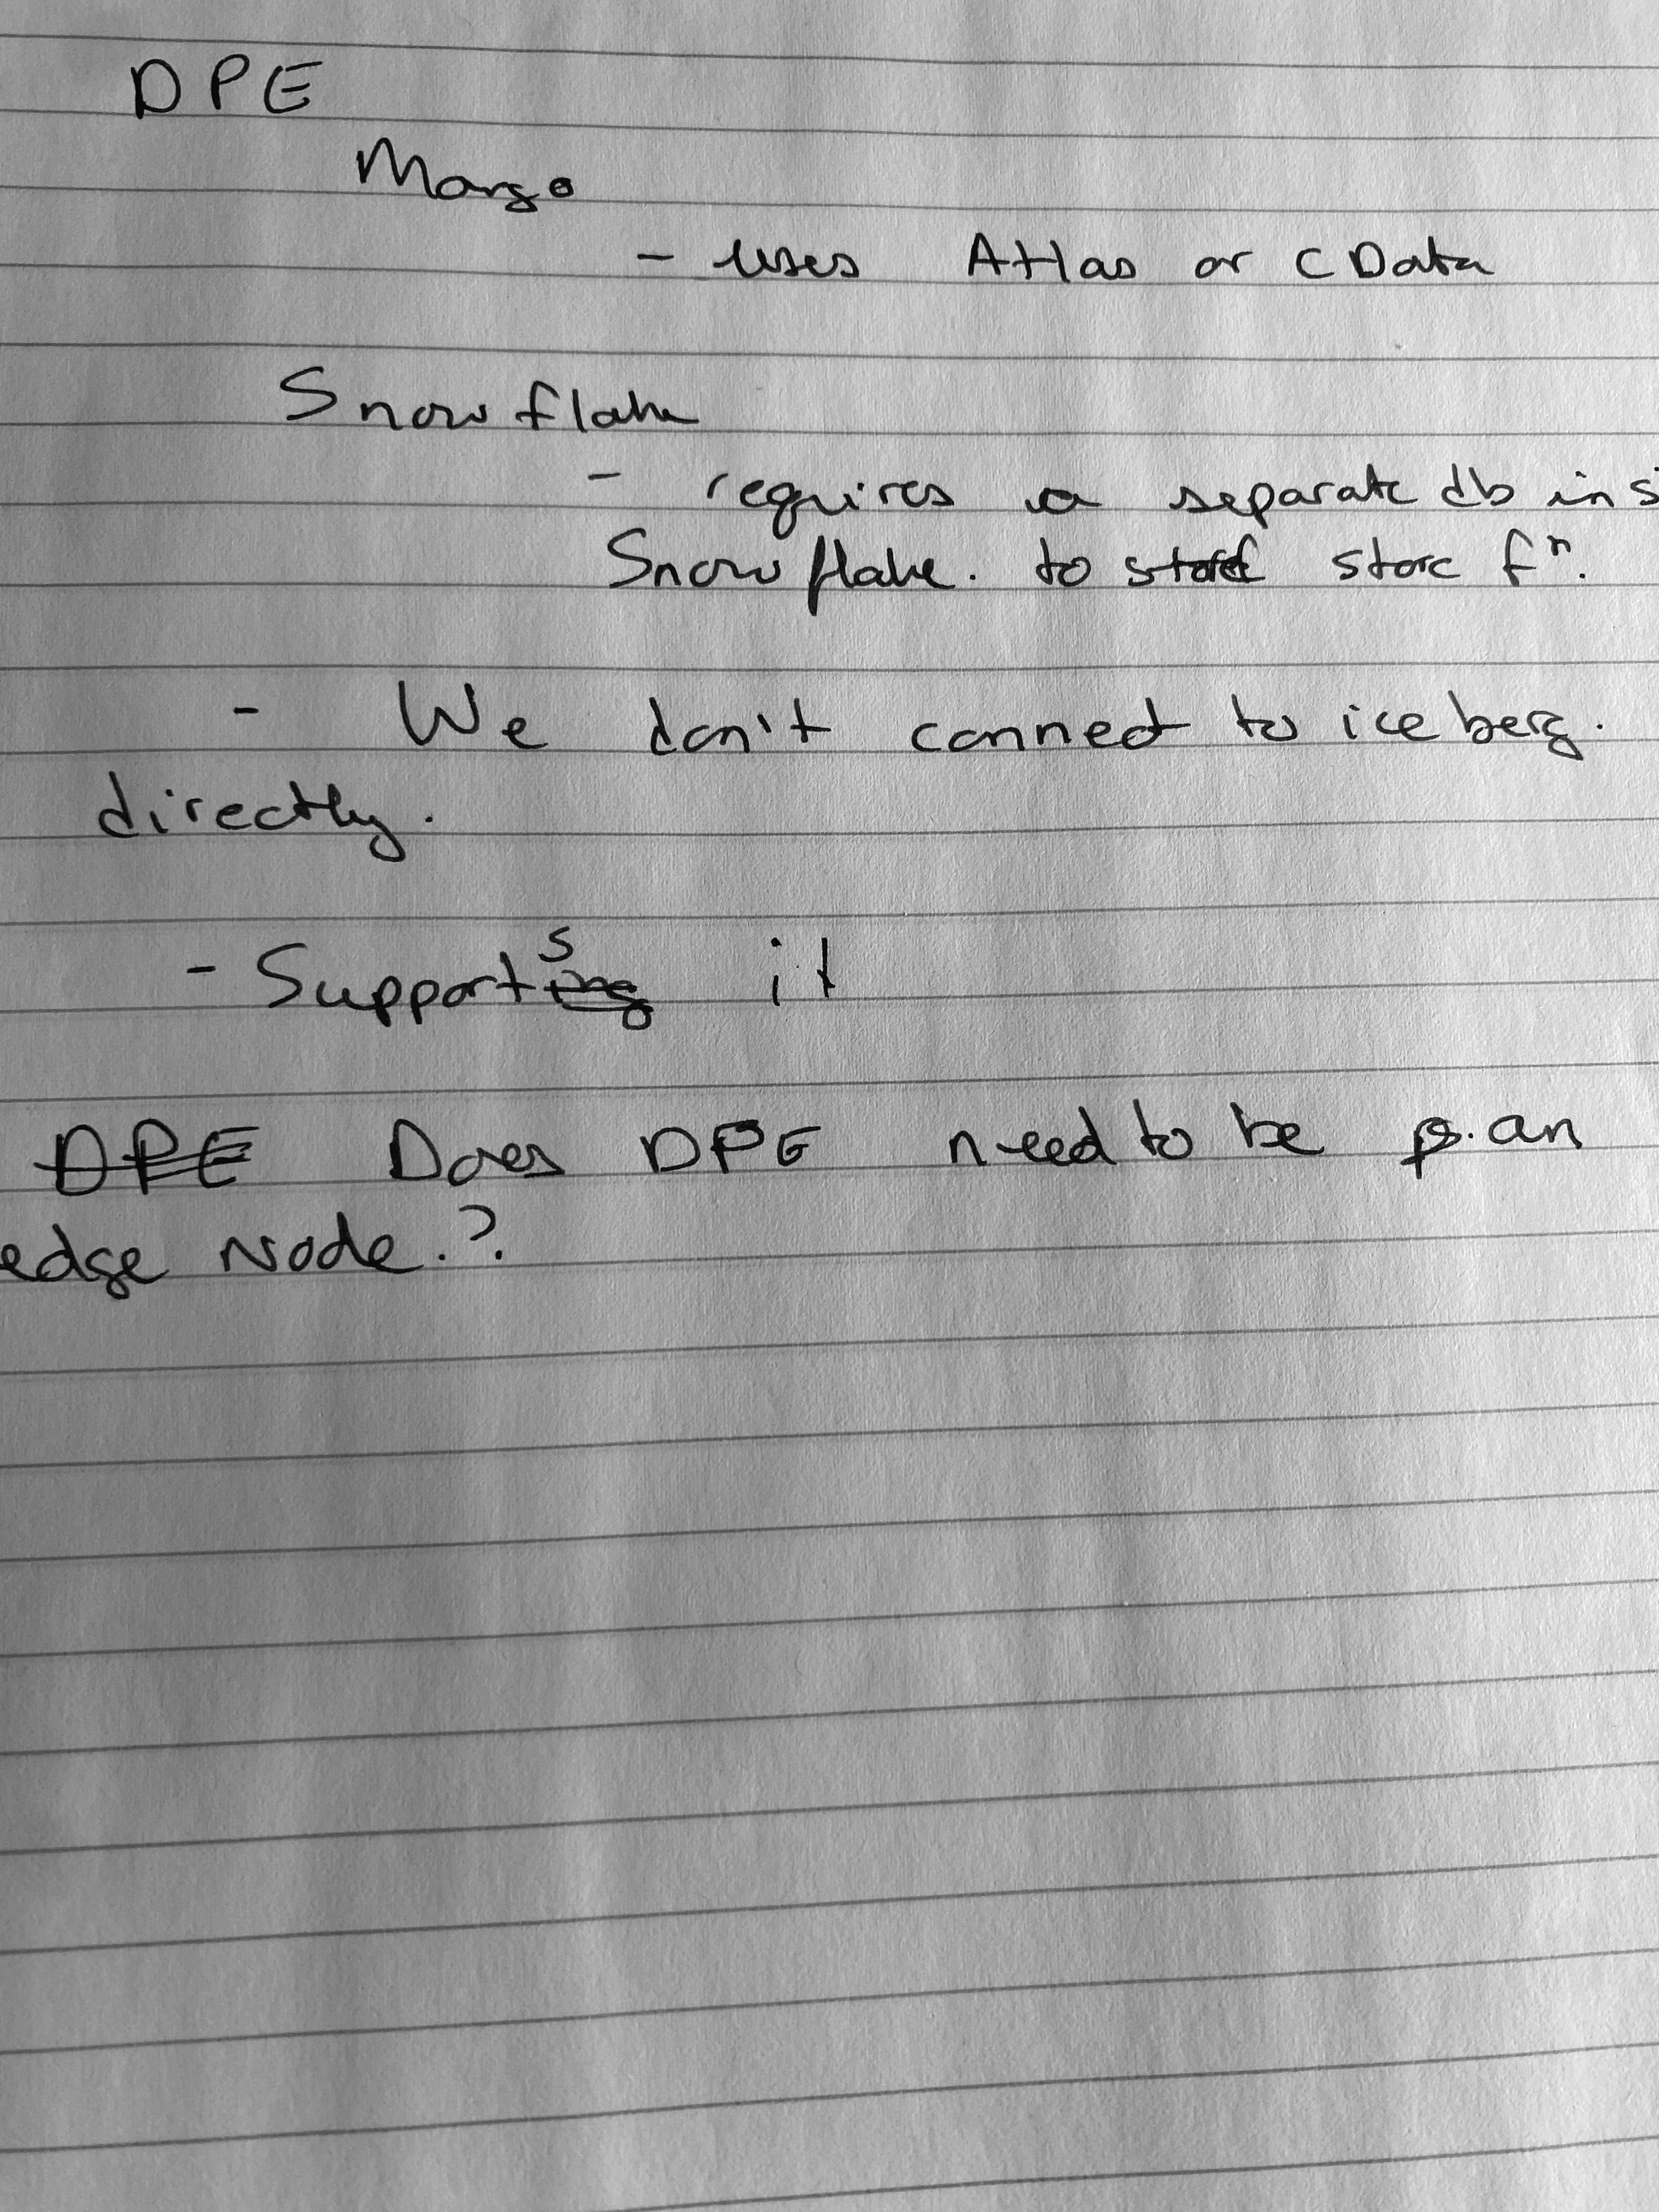 DPE
Mongo
- uses Atlas or CData
Snowflake
- requires a separate db in s
Snowflake. to store fⁿ.
- We don't connect to iceberg.
directly.
- Supports it
DPE Does DPE need to be an
edge Node.?